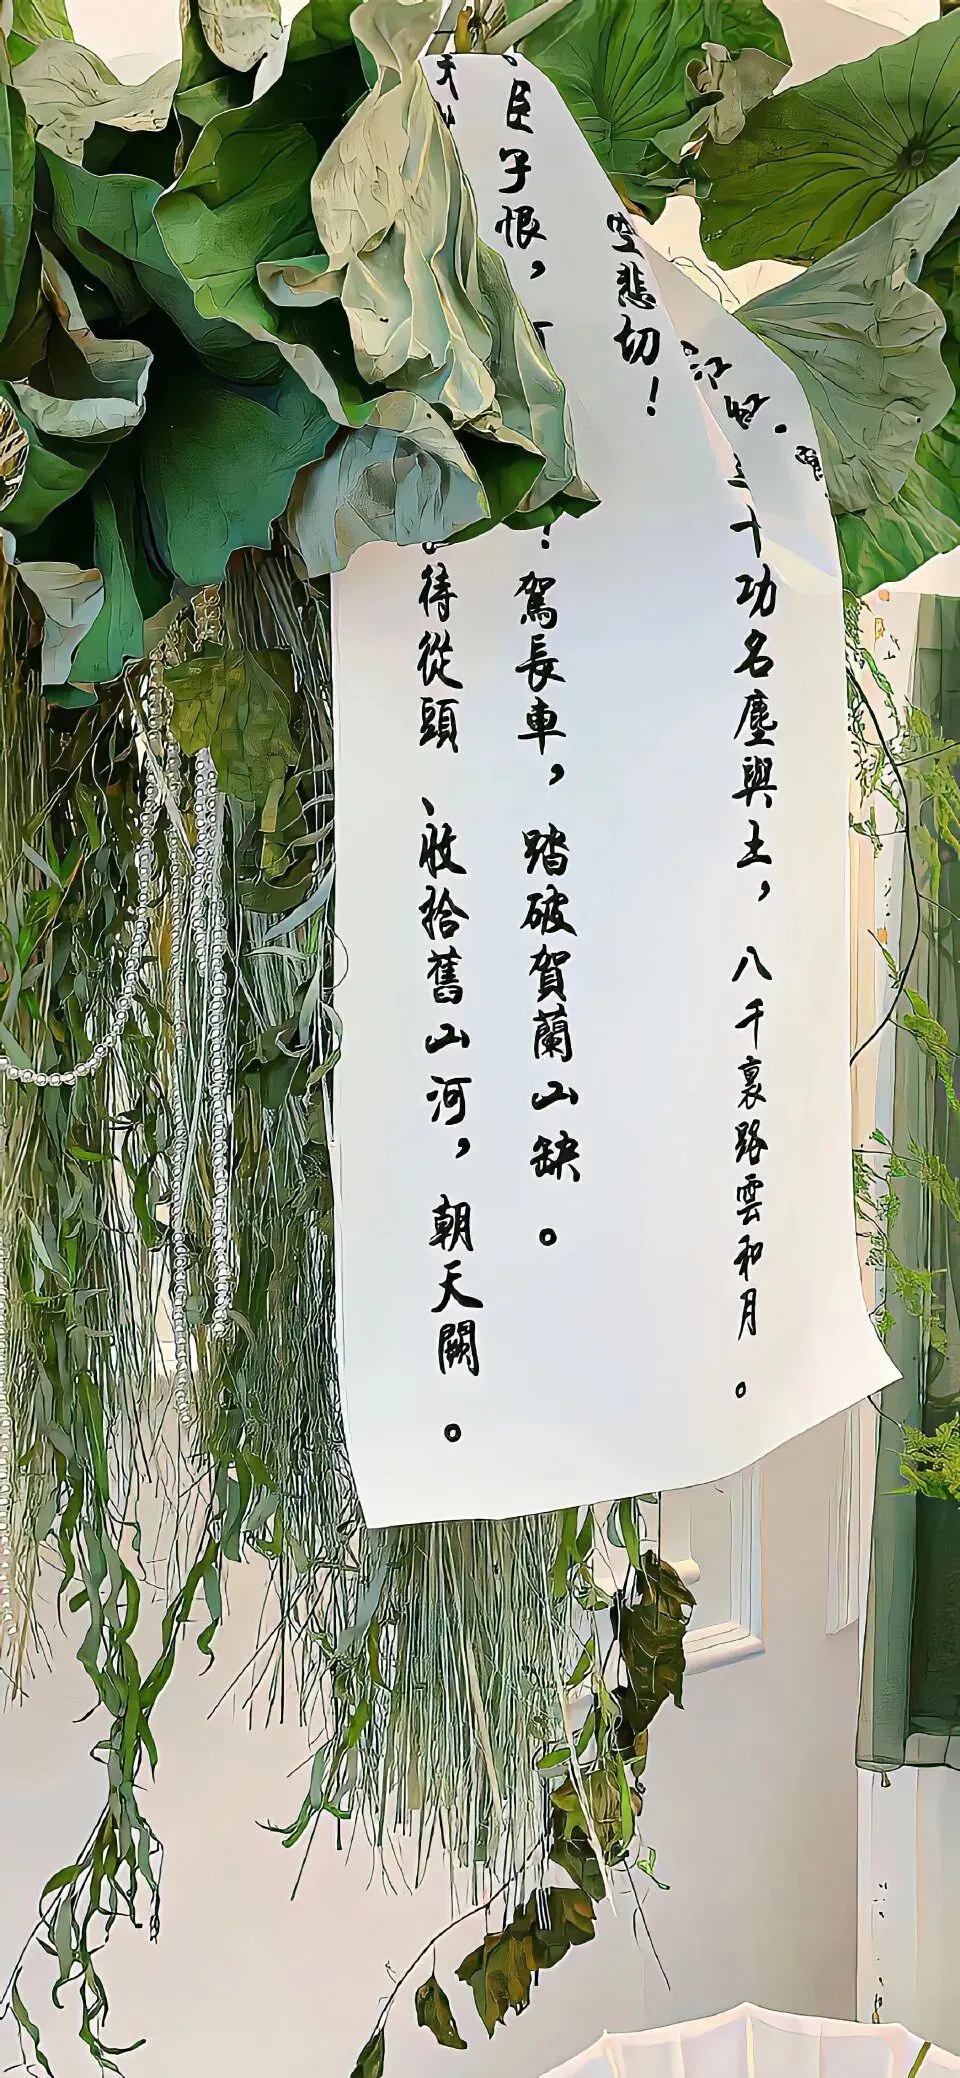 江紅·
十功名塵與土，八千裏路雲和月。
空悲切！
臣子恨，
！駕長車，踏破賀蘭山缺。
待從頭、收拾舊山河，朝天闕。